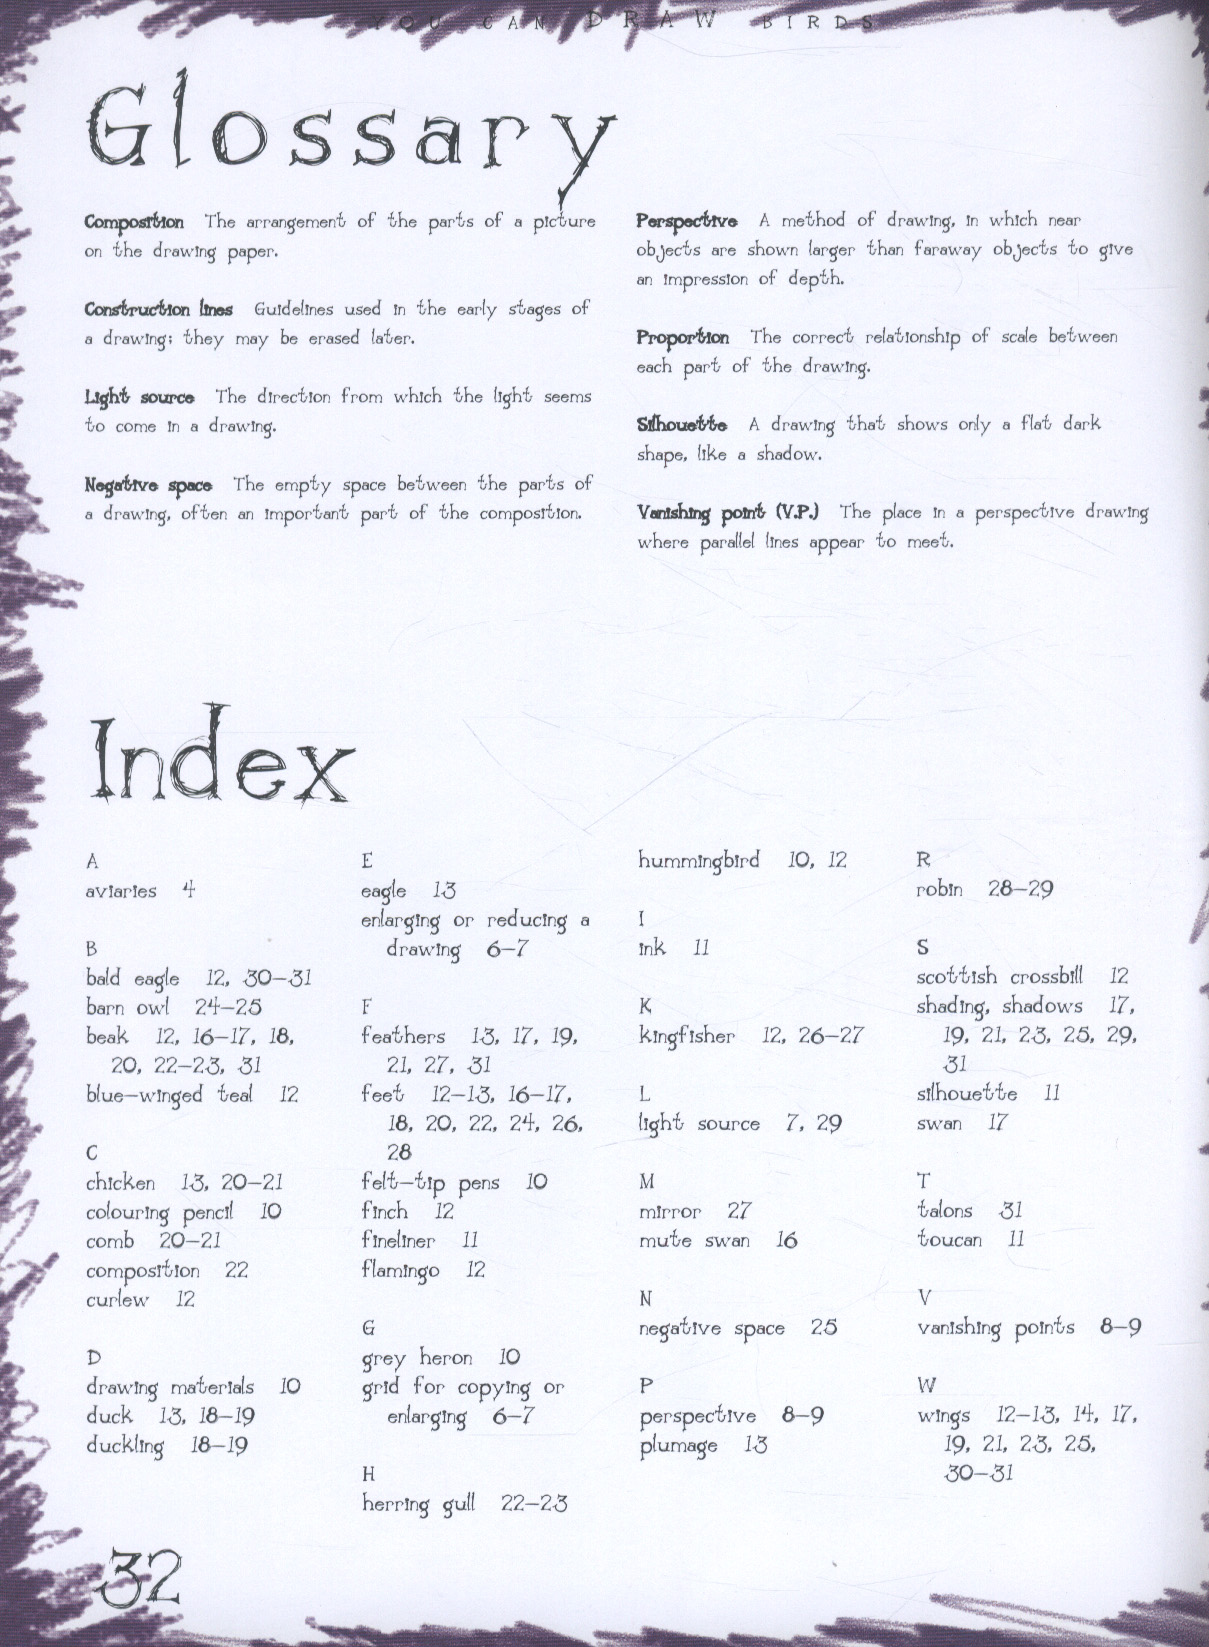 YOU CAN DRAW BIRDS
Glossary
Composition The arrangement of the parts of a picture
on the drawing paper.
Construction lines Guidelines used in the early stages of
a drawing; they may be erased later.
Light source The direction from which the light seems
to come in a drawing.
Negative space The empty space between the parts of
a drawing, often an important part of the composition.
Perspective A method of drawing, in which near
objects are shown larger than faraway objects to give
an impression of depth.
Proportion The correct relationship of scale between
each part of the drawing.
Silhouette A drawing that shows only a flat dark
shape, like a shadow.
Vanishing point (V.P.) The place in a perspective drawing
where parallel lines appear to meet.
Index
A
aviaries 4
B
bald eagle 12, 30–31
barn owl 24–25
beak 12, 16–17, 18,
20, 22–23, 31
blue-winged teal 12
C
chicken 13, 20–21
colouring pencil 10
comb 20–21
composition 22
curlew 12
D
drawing materials 10
duck 13, 18–19
duckling 18–19
E
eagle 13
enlarging or reducing a
drawing 6–7
F
feathers 13, 17, 19,
21, 27, 31
feet 12–13, 16–17,
18, 20, 22, 24, 26,
28
felt-tip pens 10
finch 12
fineliner 11
flamingo 12
G
grey heron 10
grid for copying or
enlarging 6–7
H
herring gull 22–23
hummingbird 10, 12
I
ink 11
K
kingfisher 12, 26–27
L
light source 7, 29
M
mirror 27
mute swan 16
N
negative space 25
P
perspective 8–9
plumage 13
R
robin 28–29
S
scottish crossbill 12
shading, shadows 17,
19, 21, 23, 25, 29,
31
silhouette 11
swan 17
T
talons 31
toucan 11
V
vanishing points 8–9
W
wings 12–13, 14, 17,
19, 21, 23, 25,
30–31
32